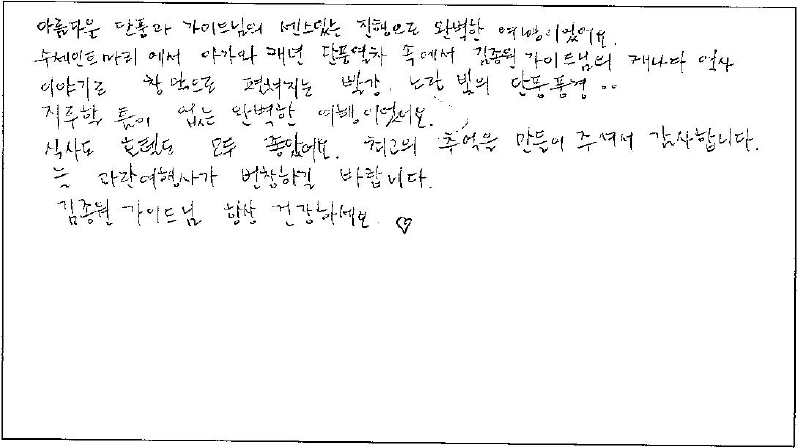 아름다운 단풍과 가이드님의 센스있는 진행으로 완벽한 여행이었어요.
수세인트마리에서 아가와 캐년 단풍열차 속에서 김종원 가이드님의 캐나다 역사
이야기로 창 밖으로 펼쳐지는 빨강, 노란 빛의 단풍풍경..
지루할 틈이 없는 완벽한 여행이었어요.
식사도 호텔도 모두 좋았어요. 최고의 추억을 만들어 주셔서 감사합니다.
늘 파란여행사가 번창하길 바랍니다.
김종원 가이드님 항상 건강하세요. ♡